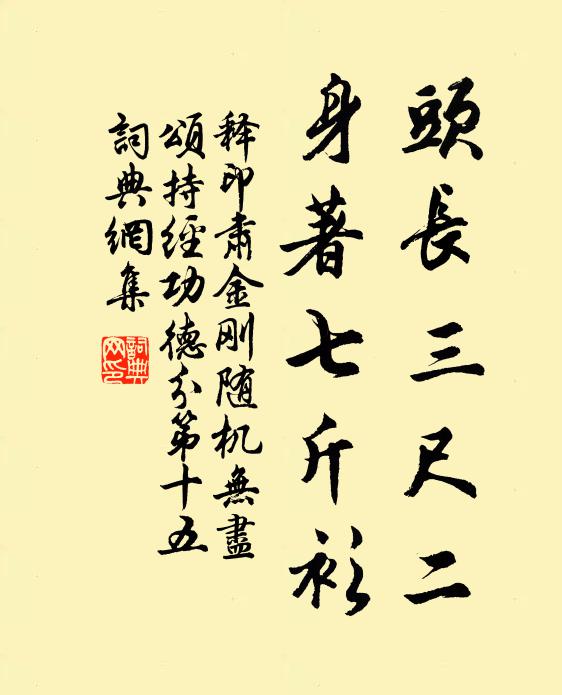 頭長三尺二
身著七斤衫
释印肅金刚随机無盡
頌持經功德分第十五
詞典網集
詞典
网印